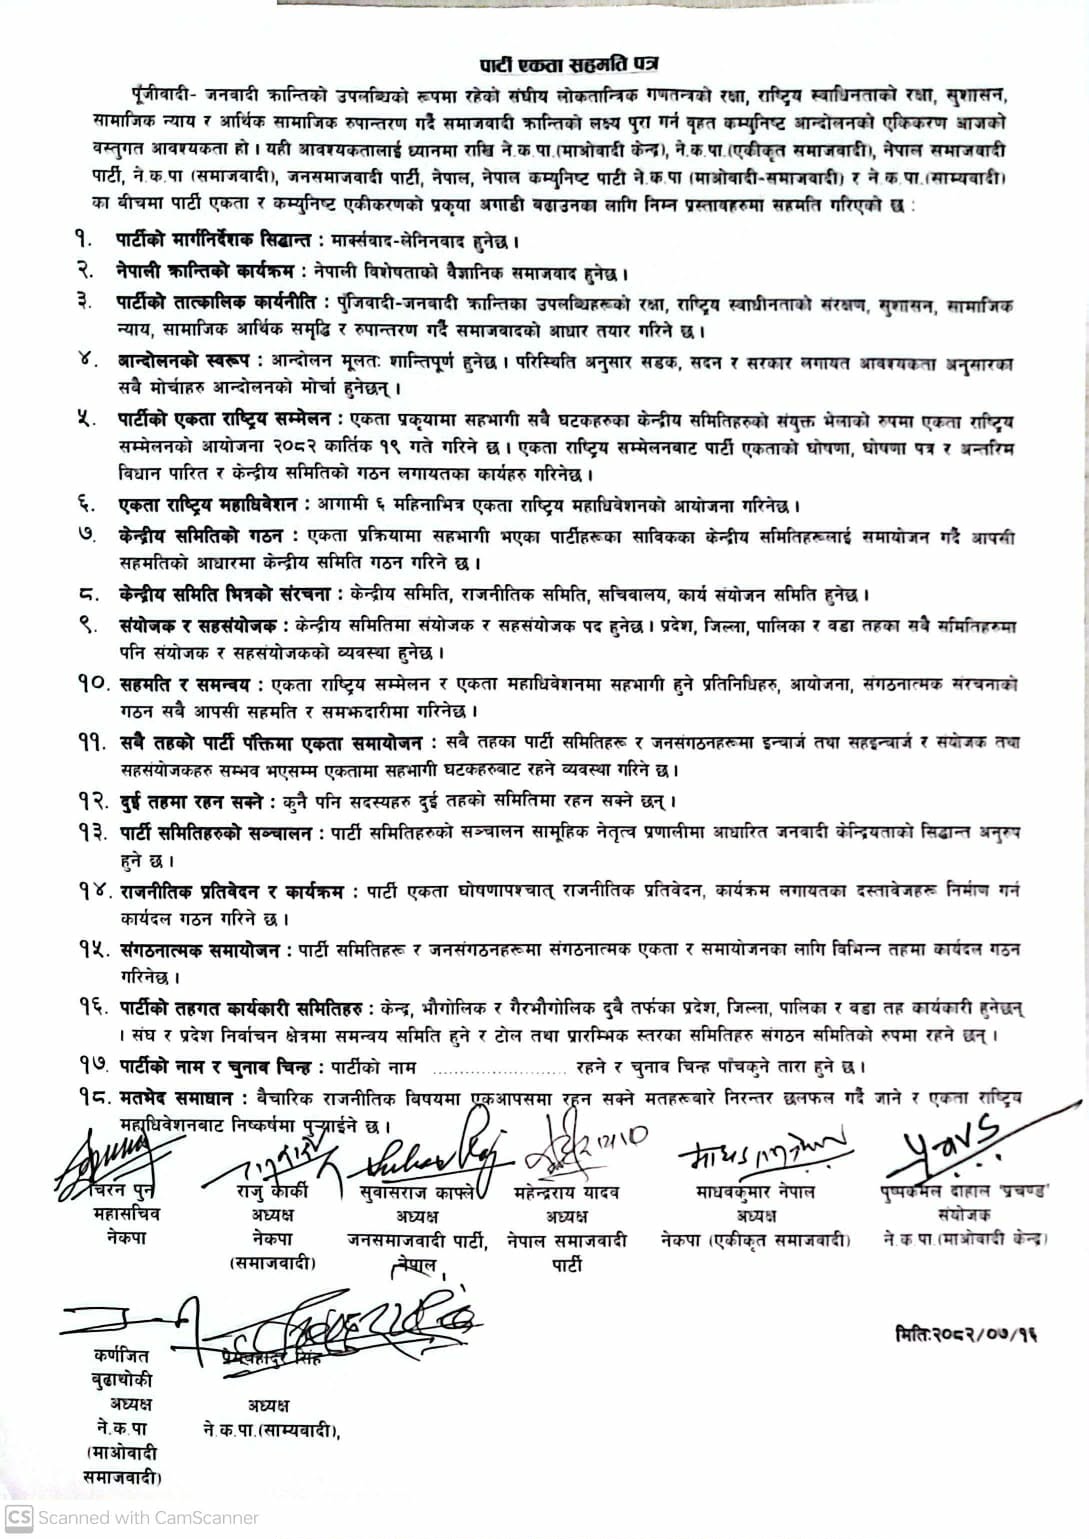 पार्टी एकता सहमति पत्र
पूँजीवादी- जनवादी क्रान्तिको उपलब्धिको रूपमा रहेको संघीय लोकतान्त्रिक गणतन्त्रको रक्षा, राष्ट्रिय स्वाधिनताको रक्षा, सुशासन,
सामाजिक न्याय र आर्थिक सामाजिक रुपान्तरण गर्दै समाजवादी क्रान्तिको लक्ष्य पुरा गर्न वृहत कम्युनिष्ट आन्दोलनको एकिकरण आजको
वस्तुगत आवश्यकता हो । यही आवश्यकतालाई ध्यानमा राखि ने.क.पा.(माओवादी केन्द्र), ने.क.पा.(एकीकृत समाजवादी), नेपाल समाजवादी
पार्टी, ने.क.पा (समाजवादी), जनसमाजवादी पार्टी, नेपाल, नेपाल कम्युनिष्ट पार्टी ने.क.पा (माओवादी-समाजवादी) र ने.क.पा.(साम्यवादी)
का बीचमा पार्टी एकता र कम्युनिष्ट एकीकरणको प्रकृया अगाडी बढाउनका लागि निम्न प्रस्तावहरुमा सहमति गरिएको छ :
१. पार्टीको मार्गनिर्देशक सिद्धान्त : मार्क्सवाद-लेनिनवाद हुनेछ ।
२. नेपाली क्रान्तिको कार्यक्रम : नेपाली विशेषताको वैज्ञानिक समाजवाद हुनेछ ।
३. पार्टीको तात्कालिक कार्यनीति : पुँजिवादी-जनवादी क्रान्तिका उपलब्धिहरुको रक्षा, राष्ट्रिय स्वाधीनताको संरक्षण, सुशासन, सामाजिक
न्याय, सामाजिक आर्थिक समृद्धि र रुपान्तरण गर्दै समाजवादको आधार तयार गरिने छ ।
४. आन्दोलनको स्वरूप : आन्दोलन मूलतः शान्तिपूर्ण हुनेछ । परिस्थिति अनुसार सडक, सदन र सरकार लगायत आवश्यकता अनुसारका
सबै मोर्चाहरु आन्दोलनको मोर्चा हुनेछन् ।
५. पार्टीको एकता राष्ट्रिय सम्मेलन : एकता प्रकृयामा सहभागी सबै घटकहरुका केन्द्रीय समितिहरुको संयुक्त भेलाको रुपमा एकता राष्ट्रिय
सम्मेलनको आयोजना २०८२ कार्तिक १९ गते गरिने छ । एकता राष्ट्रिय सम्मेलनबाट पार्टी एकताको घोषणा, घोषणा पत्र र अन्तरिम
विधान पारित र केन्द्रीय समितिको गठन लगायतका कार्यहरु गरिनेछ ।
६. एकता राष्ट्रिय महाधिवेशन : आगामी ६ महिनाभित्र एकता राष्ट्रिय महाधिवेशनको आयोजना गरिनेछ ।
७. केन्द्रीय समितिको गठन : एकता प्रक्रियामा सहभागी भएका पार्टीहरूका साविकका केन्द्रीय समितिहरूलाई समायोजन गर्दै आपसी
सहमतिको आधारमा केन्द्रीय समिति गठन गरिने छ ।
८. केन्द्रीय समिति भित्रको संरचना : केन्द्रीय समिति, राजनीतिक समिति, सचिवालय, कार्य संयोजन समिति हुनेछ ।
९. संयोजक र सहसंयोजक : केन्द्रीय समितिमा संयोजक र सहसंयोजक पद हुनेछ । प्रदेश, जिल्ला, पालिका र वडा तहका सबै समितिहरुमा
पनि संयोजक र सहसंयोजकको व्यवस्था हुनेछ ।
१०. सहमति र समन्वय : एकता राष्ट्रिय सम्मेलन र एकता महाधिवेशनमा सहभागी हुने प्रतिनिधिहरु, आयोजना, संगठनात्मक संरचनाको
गठन सबै आपसी सहमति र समझदारीमा गरिनेछ ।
११. सबै तहको पार्टी पंक्तिमा एकता समायोजन : सबै तहका पार्टी समितिहरू र जनसंगठनहरूमा इन्चार्ज तथा सहइन्चार्ज र संयोजक तथा
सहसंयोजकहरु सम्भव भएसम्म एकतामा सहभागी घटकहरुबाट रहने व्यवस्था गरिने छ ।
१२. दुई तहमा रहन सक्ने : कुनै पनि सदस्यहरु दुई तहको समितिमा रहन सक्ने छन् ।
१३. पार्टी समितिहरुको सञ्चालन : पार्टी समितिहरुको सञ्चालन सामूहिक नेतृत्व प्रणालीमा आधारित जनवादी केन्द्रियताको सिद्धान्त अनुरुप
हुने छ ।
१४. राजनीतिक प्रतिवेदन र कार्यक्रम : पार्टी एकता घोषणापश्चात् राजनीतिक प्रतिवेदन, कार्यक्रम लगायतका दस्तावेजहरू निर्माण गर्न
कार्यदल गठन गरिने छ ।
१५. संगठनात्मक समायोजन : पार्टी समितिहरू र जनसंगठनहरूमा संगठनात्मक एकता र समायोजनका लागि विभिन्न तहमा कार्यदल गठन
गरिनेछ ।
१६. पार्टीको तहगत कार्यकारी समितिहरु : केन्द्र, भौगोलिक र गैरभौगोलिक दुबै तर्फका प्रदेश, जिल्ला, पालिका र वडा तह कार्यकारी हुनेछन्
। संघ र प्रदेश निर्वाचन क्षेत्रमा समन्वय समिति हुने र टोल तथा प्रारम्भिक स्तरका समितिहरु संगठन समितिको रुपमा रहने छन् ।
१७. पार्टीको नाम र चुनाव चिन्ह : पार्टीको नाम ........................... रहने र चुनाव चिन्ह पाँचकुने तारा हुने छ ।
१८. मतभेद समाधान : वैचारिक राजनीतिक विषयमा एकआपसमा रहन सक्ने मतहरूबारे निरन्तर छलफल गर्दै जाने र एकता राष्ट्रिय
महाधिवेशनबाट निष्कर्षमा पुर्‍याईने छ ।
चिरन पुन राजु कार्की सुवासराज काफ्ले महेन्द्रराय यादव माधवकुमार नेपाल पुष्पकमल दाहाल 'प्रचण्ड'
महासचिव अध्यक्ष अध्यक्ष अध्यक्ष अध्यक्ष संयोजक
नेकपा नेकपा जनसमाजवादी पार्टी, नेपाल समाजवादी नेकपा (एकीकृत समाजवादी) ने.क.पा.(माओवादी केन्द्र)
(समाजवादी) नेपाल, पार्टी
मिति:२०८२/०७/१६
कर्णजित प्रेमबहादुर सिंह
बुढाथोकी
अध्यक्ष अध्यक्ष
ने.क.पा ने.क.पा.(साम्यवादी),
(माओवादी
समाजवादी)
CS Scanned with CamScanner